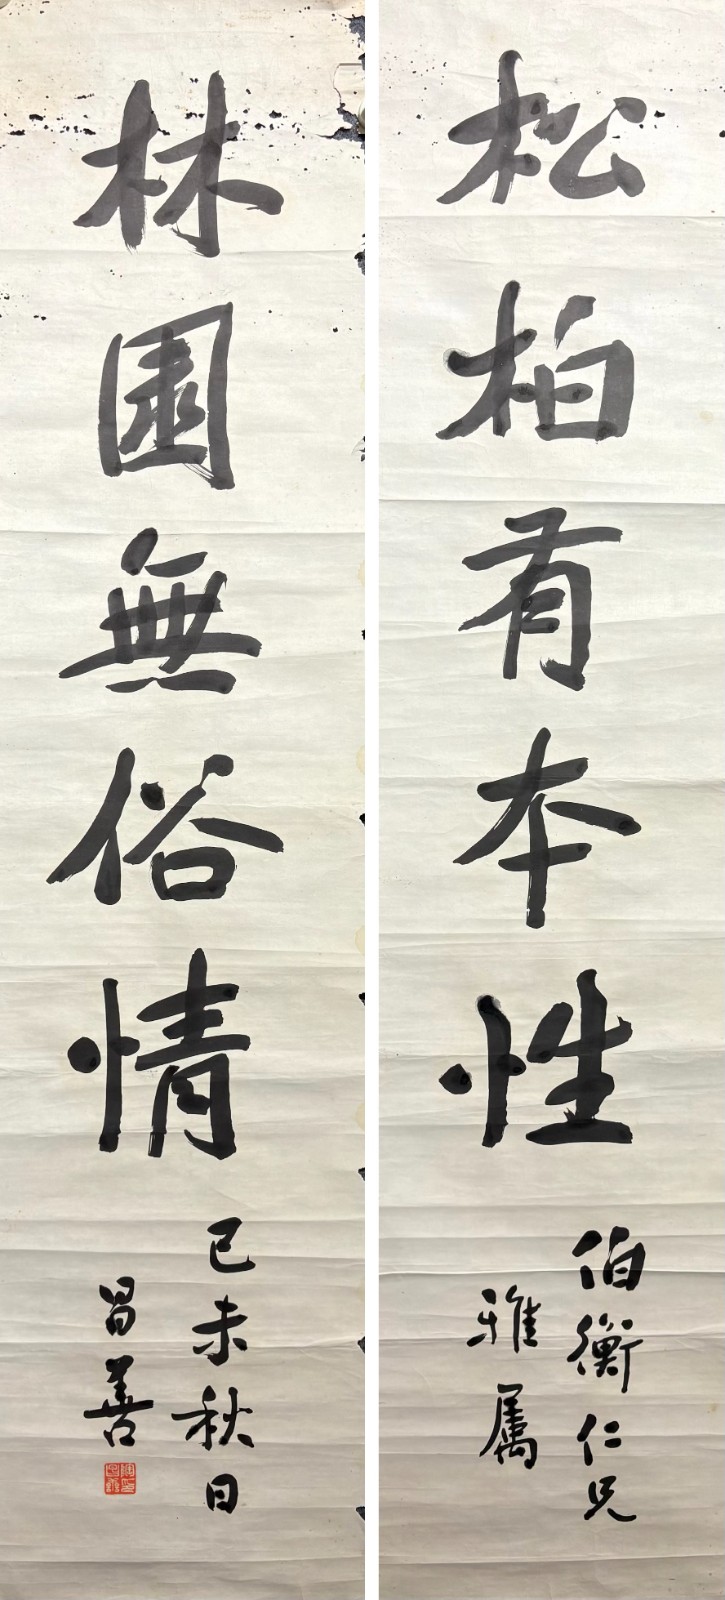 松柏有本性
伯衡仁兄
雅属
林園無俗情
己未秋日
昌善